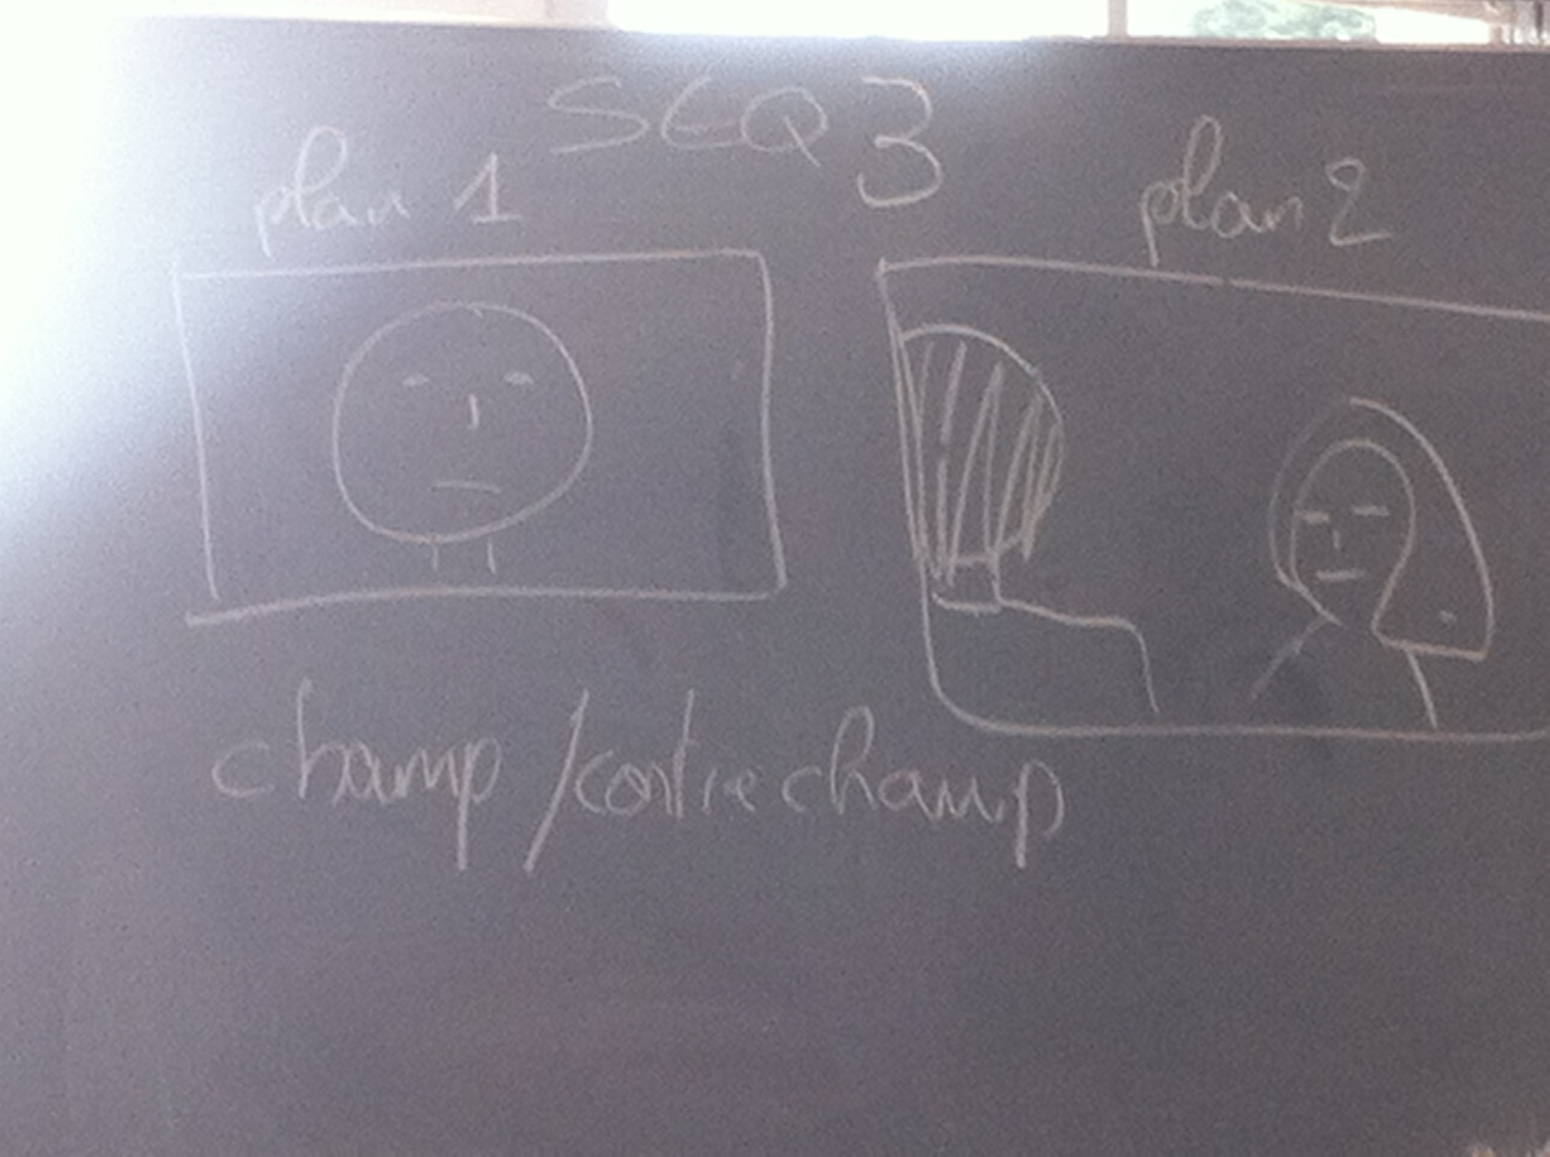 SEQ 3
plan 1
plan 2
champ / contrechamp